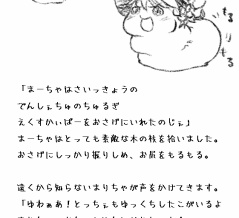 もるもる
「まーちゃはさいっきょうの
でんしぇちゅのちゅるぎ
えくすかいばーをおさげにいれたのじぇ」
まーちゃはとっても素敵な木の枝を拾いました。
おさげにしっかり握りしめ、お尻をもるもる。
遠くから知らないまりちゃが声をかけてきます。
「ゆわぁあ！とっちぇもゆっくちしたこがいるよ